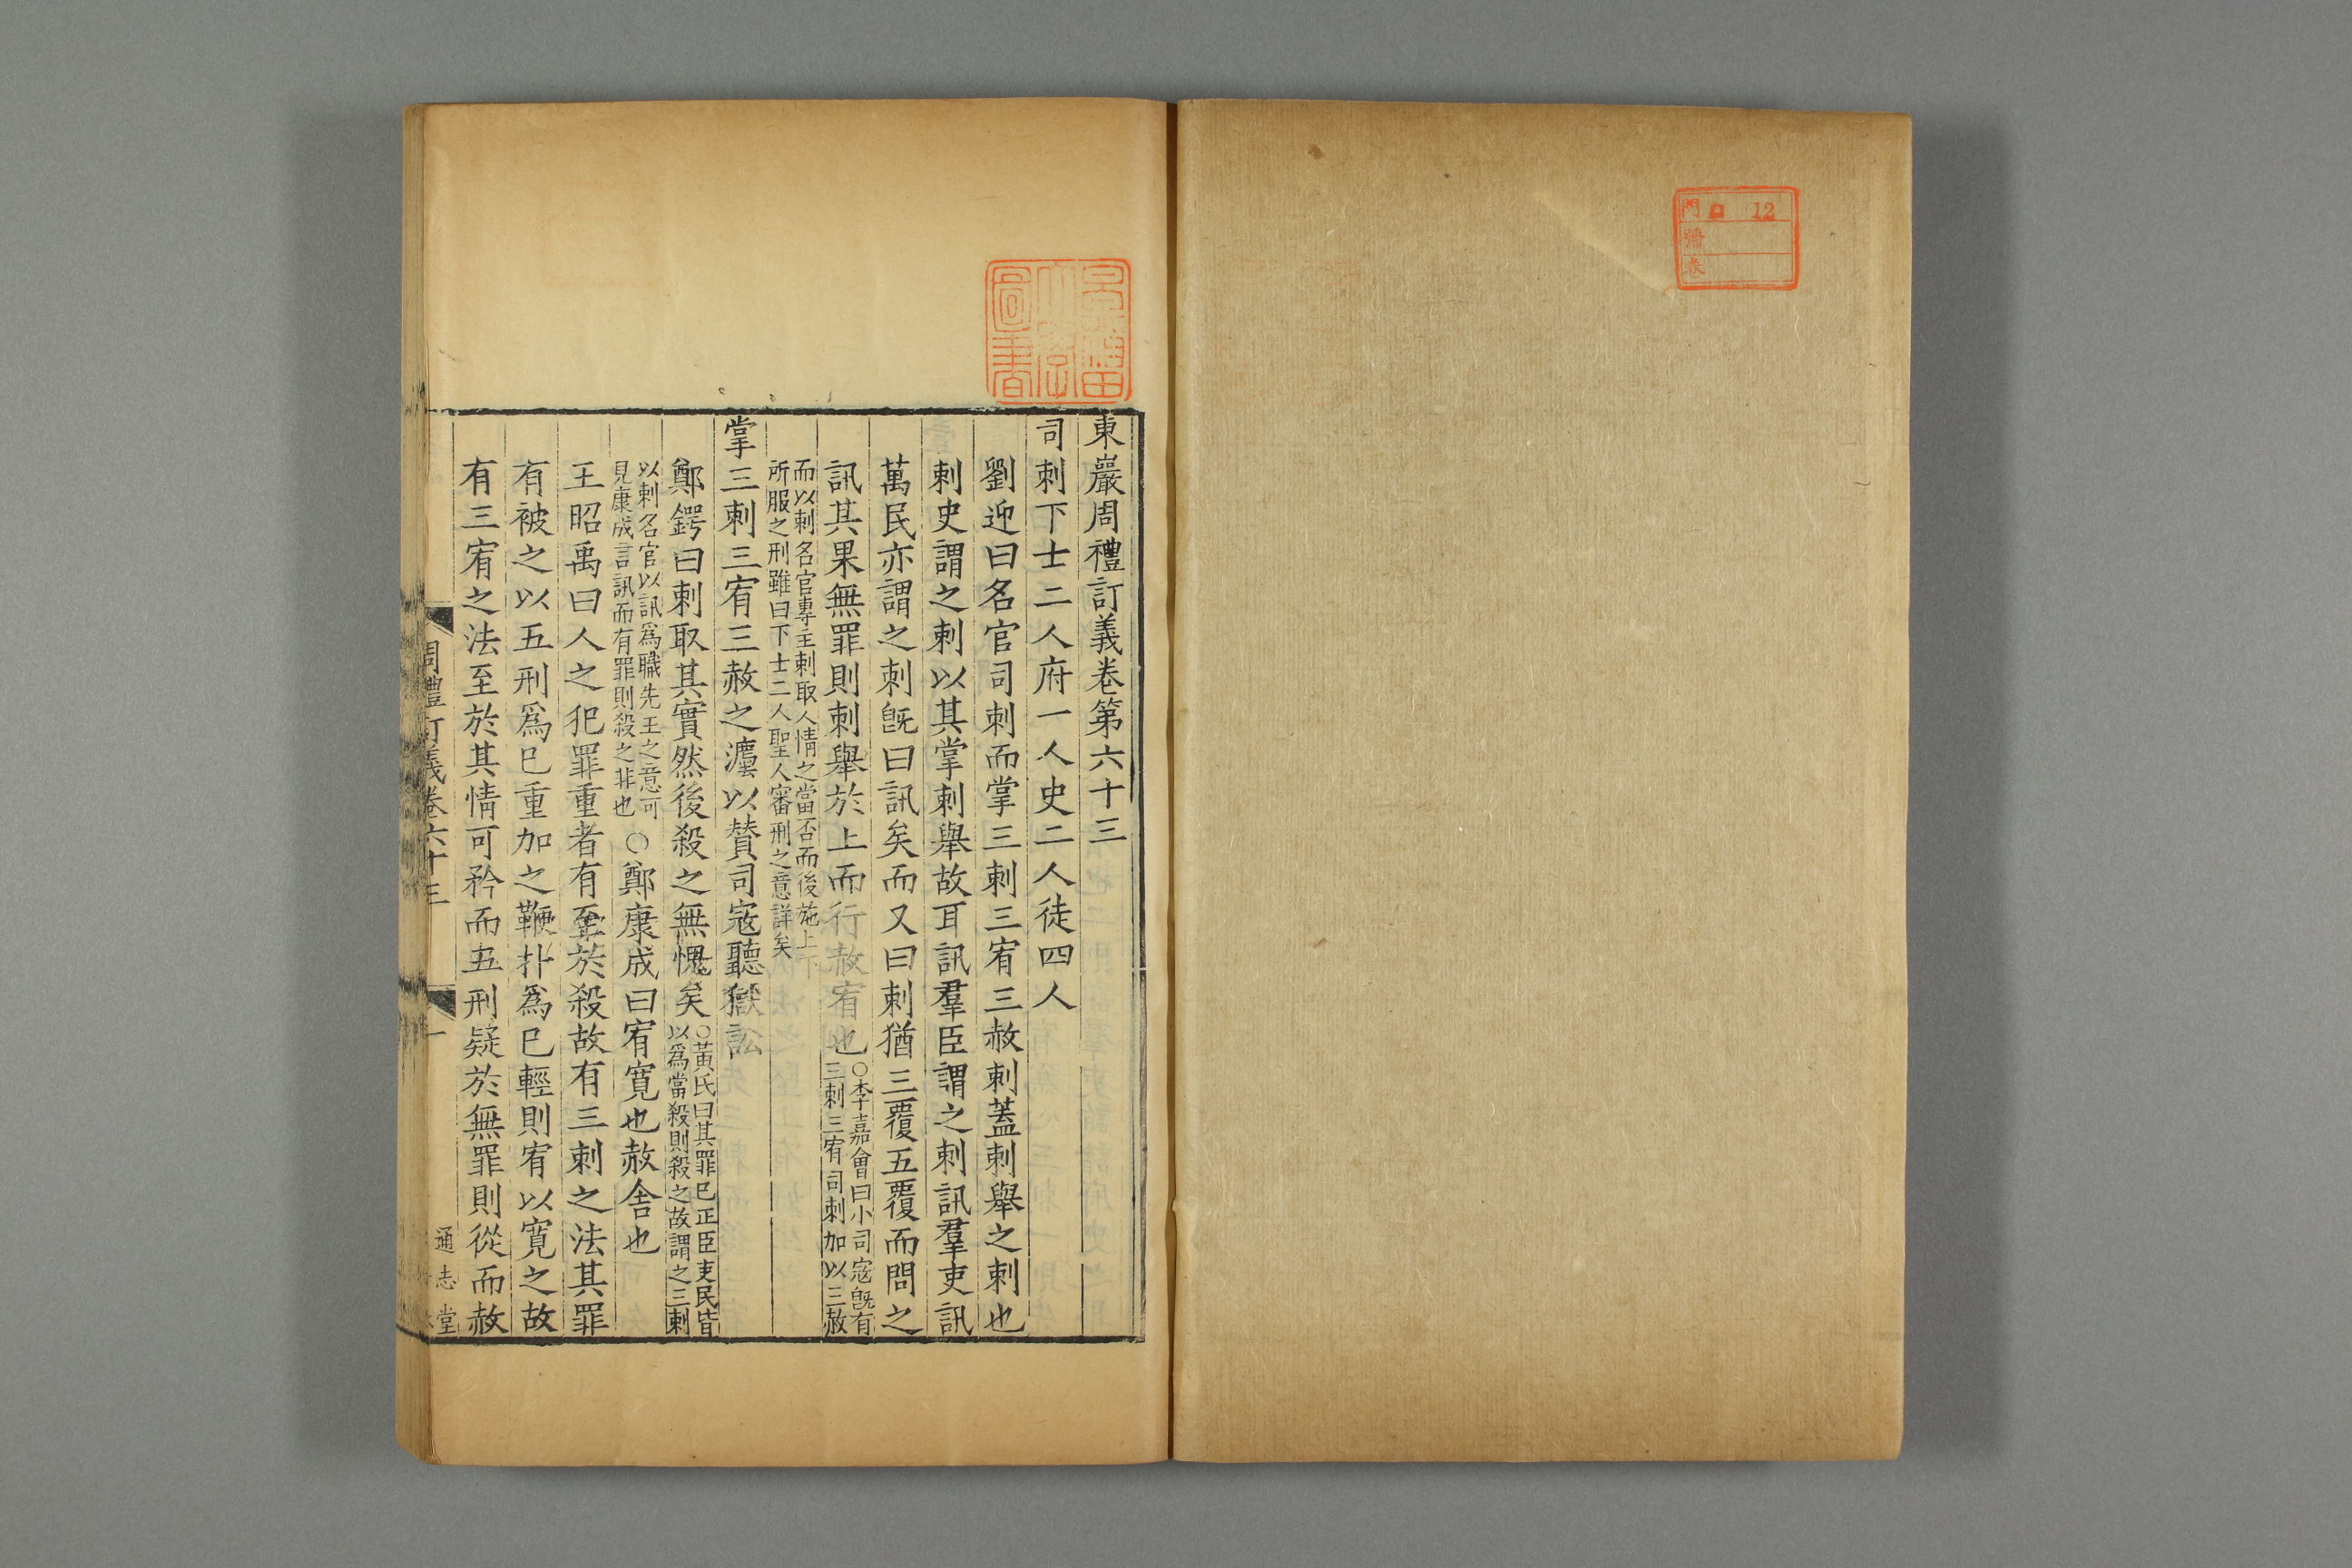 門 12
號
卷
早稲田大學圖書
東巖周禮訂義卷第六十三
司刺下士二人府一人史二人徒四人
劉迎曰名官司刺而掌三刺三宥三赦刺蓋刺舉之刺也
刺史謂之刺以其掌刺舉故耳訊羣臣謂之刺訊羣吏訊
萬民亦謂之刺旣曰訊矣而又曰刺猶三覆五覆而問之
訊其果無罪則刺舉於上而行赦宥也○李嘉會曰小司寇旣有
三刺三宥司刺加以三赦
而以刺名官專主刺取人情之當否而後施上下
所服之刑雖曰下士二人聖人審刑之意詳矣
掌三刺三宥三赦之灋以贊司寇聽獄訟
鄭鍔曰刺取其實然後殺之無愧矣○黃氏曰其罪已正臣吏民皆
以爲當殺則殺之故謂之三刺
以刺名官以訊爲職先王之意可
見康成言訊而有罪則殺之非也○鄭康成曰宥寬也赦舍也
王昭禹曰人之犯罪重者有至於殺故有三刺之法其罪
有被之以五刑爲已重加之鞭扑爲已輕則宥以寬之故
有三宥之法至於其情可矜而五刑疑於無罪則從而赦
周禮訂義卷六十三
一
通志堂